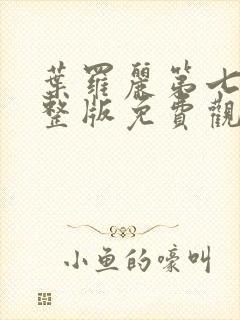 葉羅麗第七
整版免費觀
小魚的嚎叫